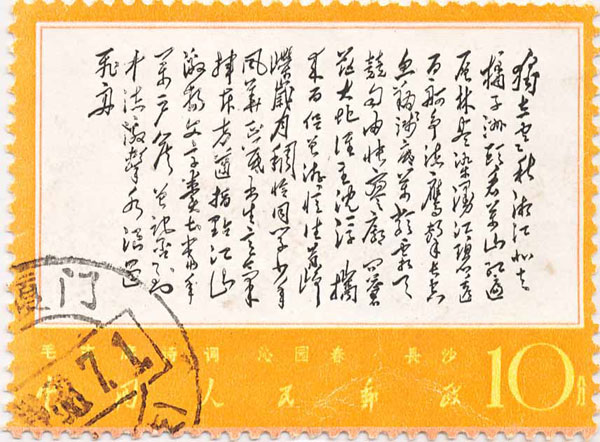 独立寒秋湘江北去
橘子洲头看万山红遍
层林尽染漫江碧透
百舸争流鹰击长空
鱼翔浅底万类霜天
竞自由怅寥廓问苍
茫大地谁主沉浮携
来百侣曾游忆往昔峥
嵘岁月稠恰同学少年
风华正茂书生意气
挥斥方遒指点江山
激扬文字粪土当年
万户侯曾记否到
中流击水浪遏
飞舟
毛主席诗词 沁园春 长沙
中国人民郵政
10分
厦门
7.1